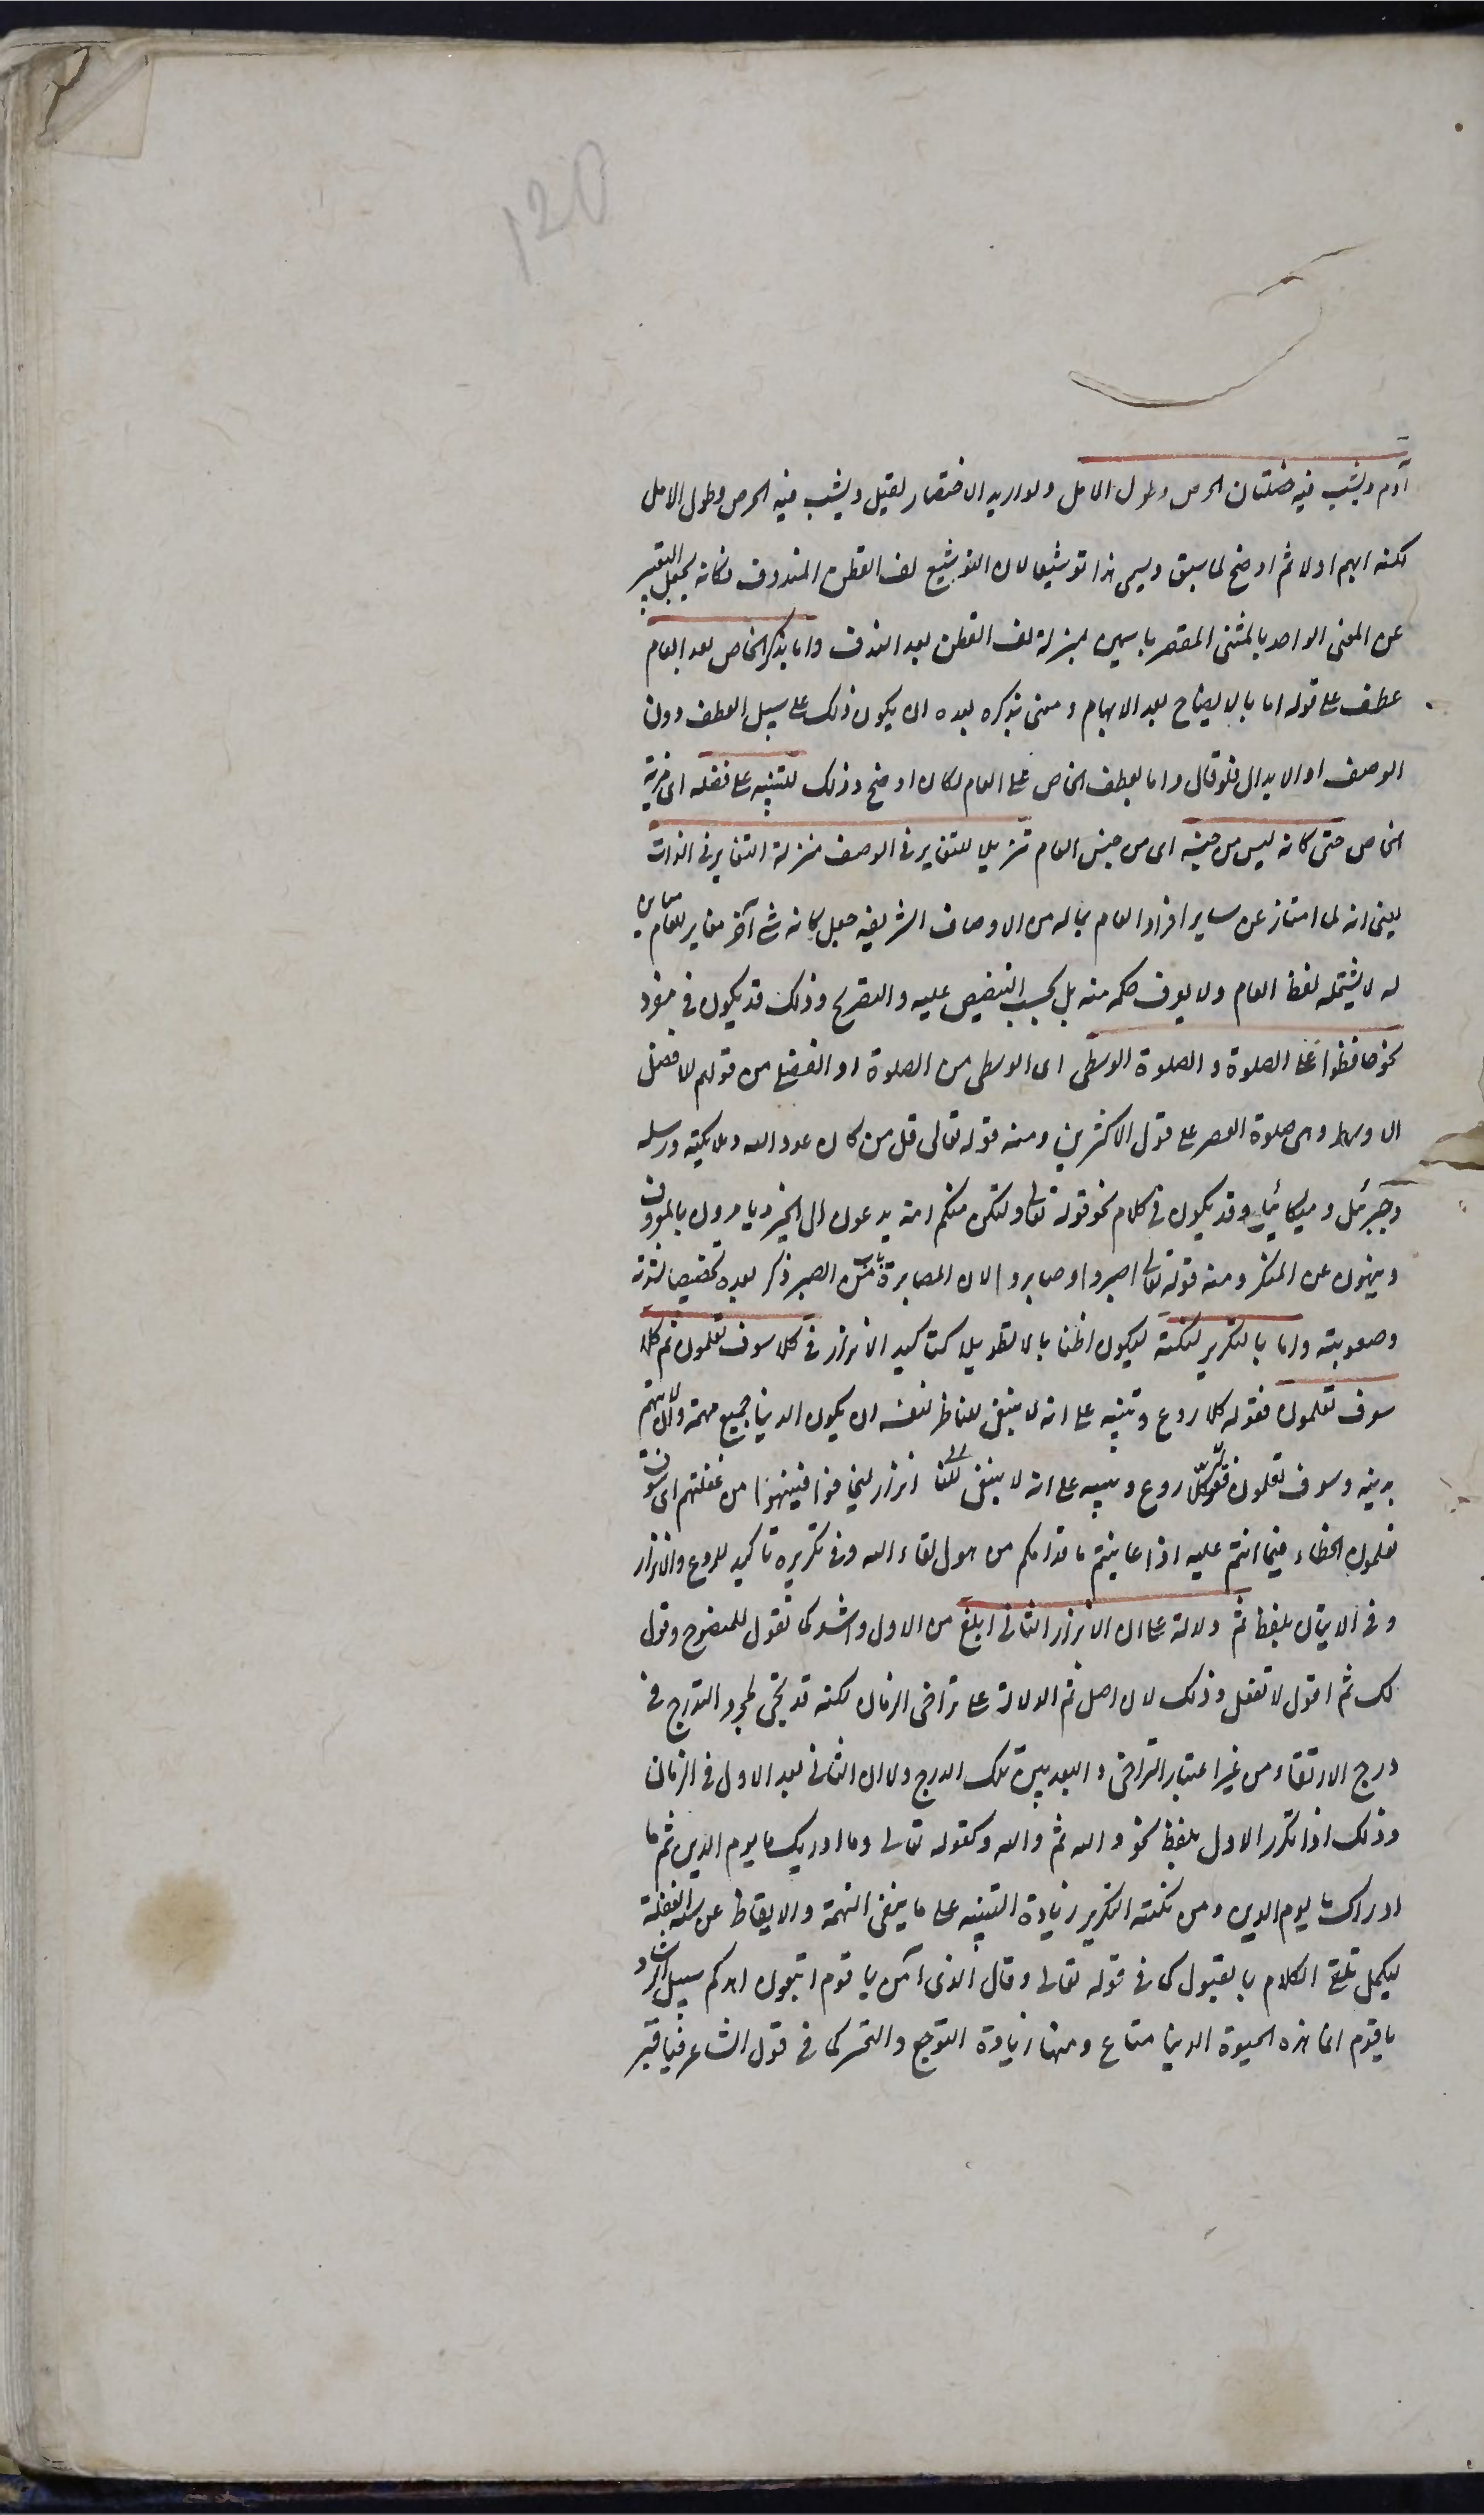 120
آدم ويشب فيه خصلتان الحرص وطول الامل ولو اريد الاختصار لقيل ويشب فيه الحرص وطول الامل
لكنه ابهم اولا ثم اوضح لما سبق ويسمى هذا توشيعا لان التوشيع لف القطن المندوف فكانه يجعل التعبير
عن المعنى الواحد بالمثنى المفسر باسمين بمنزلة لف القطن بعد الندف واما بذكر الخاص بعد العام
عطف على قوله اما بالايضاح بعد الابهام ومعنى بذكره بعده ان يكون ذلك على سبيل العطف دون
الوصف او الابدال فلو قال واما بعطف الخاص على العام لكان اوضح وذلك للتنبيه على فضله اى مزية
الخاص حتى كانه ليس من جنسه اى من جنس العام تنزيلا للتغاير فى الوصف منزلة التغاير فى الذات
يعنى انه لما امتاز عن ساير افراد العام بماله من الاوصاف الشريفة جعل كانه شئ آخر مغاير للعام مباين
له لا يشتمله لفظ العام ولا يعرف حكمه منه بل يجب التنصيص عليه والتصريح وذلك قد يكون فى مفرد
نحو حافظوا على الصلوة والصلوة الوسطى اى الوسطى من الصلوة او الفضلى من قولهم للافضل
الاوسط وهى صلوة العصر على قول الاكثرين ومنه قوله تعالى قل من كان عدوا لله وملايكته ورسله
وجبرئل وميكائيل وقد يكون فى كلام نحو قوله تعالى ولتكن منكم امة يدعون الى الخير ويامرون بالمعروف
وينهون عن المنكر ومنه قوله تعالى اصبروا وصابروا لان المصابرة باب من الصبر ذكر بعده تخصيصا لشدته
وصعوبته واما بالتكرير لنكتة ليكون اطنابا لا تطويلا كتاكيد الانذار فى كلا سوف تعلمون ثم كلا
سوف تعلمون فقوله كلا ردع وتنبيه على انه لا ينبغى للناظر لنفسه ان يكون الدنيا جميع همه وان لا يهتم
بدينه وسوف تعلمون انذار ليخافوا فينتبهوا من غفلتهم اى سوف
تعلمون الخطاء فيما انتم عليه اذا عاينتم ما قدامكم من هول لقاء الله وفى تكريره تاكيد للردع والانذار
وفى الاتيان بلفظ ثم دلالة على ان الانذار الثانى ابلغ من الاول واشد كما تقول للمنصوح اقول
لك ثم اقول لا تفعل وذلك لان اصل ثم الدلالة على تراخى الزمان لكنه قد يجئ لمجرد التدرج فى
درج الارتقاء من غير اعتبار التراخى والبعد بين تلك الدرج ولا ان الثانى بعد الاول فى الزمان
وذلك اذا تكرر الاول بلفظه نحو والله ثم والله وكقوله تعالى وما ادريك ما يوم الدين ثم ما
ادراك ما يوم الدين ومن نكتة التكرير زيادة التنبيه على ما ينفى التهمة والايقاظ عن سنة الغفلة
ليكمل تلقى الكلام بالقبول كما فى قوله تعالى وقال الذى آمن يا قوم اتبعون اهدكم سبيل الرشاد
يا قوم انما هذه الحيوة الدنيا متاع ومنها زيادة التوجع والتحسر كما فى قول الشاعر فيا قبر